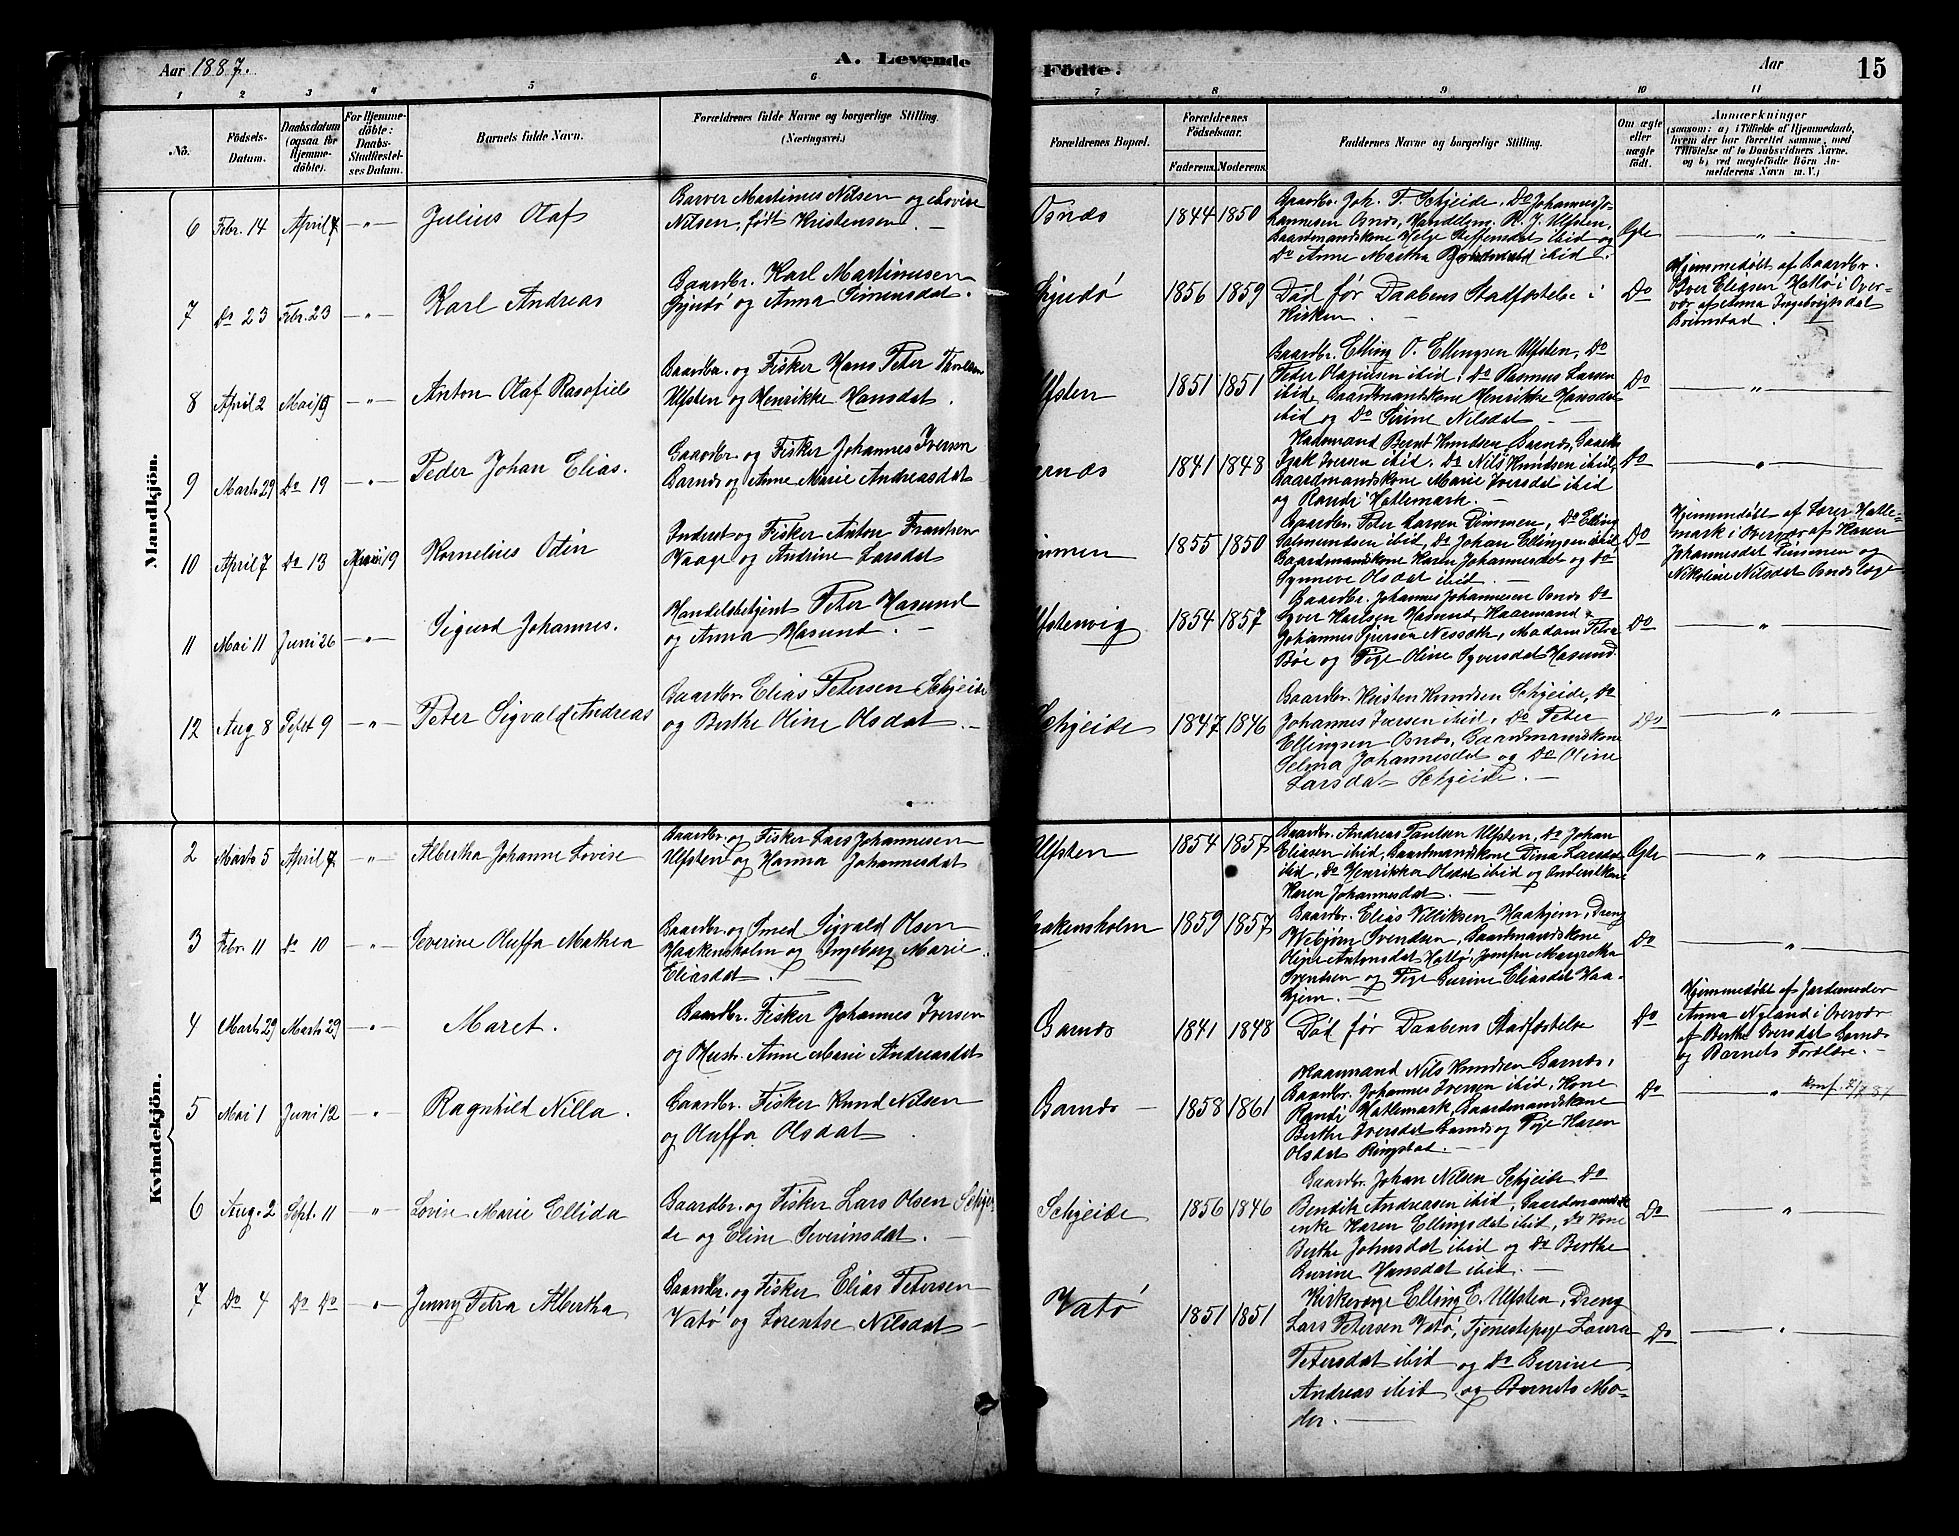 Aar 1887.
A. Levende
Födte.
Aar
15
1 2 3 4 5 6 7 8 9 10 11
No.
Födsels-
Datum.
Daabsdatum
(ogsaa for
Hjemme-
döbte).
For Hjemme-
döbte:
Daabs-
Stadfæstel-
ses Datum.
Barnets fulde Navn.
Forældrenes fulde Navne og borgerlige Stilling.
(Næringsvei.)
Forældrenes Bopæl.
Forældrenes
Födselsaar.
Faderens. Moderens.
Faddernes Navne og borgerlige Stilling.
Om ægte
eller
uægte
födt.
Anmærkninger
(saasom: a) i Tilfælde af Hjemmedaab,
hvem der har forrettet samme, med
Tilföielse af to Daabsvidners Navne.
og b) ved uægtefödte Börn An-
melderens Navn m. V.)
Mandkjön.
6 Febr. 14 April 7 -"- Julius Olaf
Martinus Nilsen og Lovise
Nilsen, født Kristensen. -
Osnæs 1844 1850
Gaardbr. Joh. P. Schjeide, Do Johannes Jo-
hannesen Osnæs, Handelsm. R. J. Ulfsten,
Gaardmandskone Helge Steffensdat ibid og
Do Anne Martha ibid.
Ægte "
7 Do 23 Febr. 23 -"- Karl Andreas
Gaardbr. Karl Martinusen
og Anna Simensdat.
1856 1859
Død før Daabens Stadfæstelse i
Kirken. -
Do
Hjemmedøbt af Gaardbr.
Iver Eliasen Hatlø i Over-
vær af Anna Ingebrigtsdat
8 April 2 Mai 19 -"- Anton Olaf Rasofiels
Gaardbr. og Fisker Hans Peter
Ulfsten og Henrikke Hansdat.
Ulfsten 1851 1851
Gaardbr. Elling O. Ellingsen Ulfsten, Do
Peder ibid, Do Rasmus Larsen
ibid, Gaardmandskone Henrikke Hansdat
ibid og Do Sirine Nilsdat -
Do "
9 Marts 29 Do 19 -"- Peder Johan Elias.
Gaardbr. og Fisker Johannes Iversen
Garnæs og Anne Marie Andreasdat
1841 1848
Bernt Knudsen Garnæs, Gaardbr
Isak Iversen ibid. Do Nils Knudsen ibid,
Gaardmandskone Marie Iversdat ibid
og Randi Hatlemark. -
Do "
10 April 7 Do 13 Mai 19 Kornelius Odin
Inderst og Fisker Anton Frantsen
Vaage og Andrine Larsdat
1855 1850
Gaardbr. Peter Larsen Dimmen, Do Elling
Salmundsen ibid, Do Johan Ellingsen ibid,
Gaardmandskone Karen Johannesdat og Do
Synneve Olsdat ibid. -
Do
Hjemmedøbt af Hatle-
mark i Overvær af Karen
Johannesdat Dimmen og
Nikoline Nilsdat Osnæs
11 Mai 11 Juni 26 -"- Sigurd Johannes.
Handelsbetjent Peter Hasund
og Anna Hasund. -
Ulfstenvig 1854 1857
Gaardbr. Johannes Johannesen Osnæs Do
Syver Karlsen Hasund, Kaarmand
Johannes Nessæth, Madam Petra
Bøe og Pige Oline Syversdat Hasund.
Do "
12 Aug 8 Sept 9 " Peter Sigvald Andreas
Gaardbr. Elias Petersen Schjeide
og Berthe Oline Olsdat. -
Schjeide 1847 1846
Gaardbr. Kristen Knudsen Schjeide, Do
Johannes Iversen ibid. Do Peter
Ellingsen Osnæs, Gaardmandskone
Selina Johannesdat og Do Oline
Larsdat Schjeide. -
Do "
Kvindekjön.
2 Marts 5 April 7 " Albertha Johanne Lovise
Gaardbr. og Fisker Lars Johannesen
Ulfsten og Hanna Johannesdat
Ulfsten 1854 1857
Gaardbr. Andreas Paulsen Ulfsten, Do Johan
Eliasen ibid, Gaardmandskone Dina Larsdat
ibid, Do Henrikka Olsdat ibid og Inderstkone
Karen Johannesdat -
Ægte "
3 Febr. 11 Do 10 " Severine Oluffa Mathea
Gaardbr. og Smed Sigvald Olsen
Haakensholm og Ingeborg Marie
Eliasdat. -
Haakensholm 1859 1857
Gaardbr. Elias Villiksen Haahjem, Dreng
Webjørn Svendsen, Gaardmandskone
Oline Antonsdat Hatlø, Jomfru Margretha
Svendsen og Pige Gurine Eliasdat Haa-
hjem. -
Do "
4 Marts 29 Marts 29 " Maret.
Gaardbr. Fisker Johannes Iversen
og Hustr. Anne Marie Andreasdat
Garnæs 1841 1848
Død før Daabens Stadfæstelse
Do
Hjemmedøbt af Jordemoder
Anna Nyland i Overvær
af Berthe Iversdat Garnæs
og Barnets Forældre. -
5 Mai 1 Juni 12 " Ragnhild Nilla.
Gaardbr. Fisker Knud Nilsen
og Oluffa Olsdat
Garnæs - 1858 1861
Kaarmand Nils Knudsen Garnæs,
Gaardbr. Johannes Iversen ibid, Kone
Randi Hatlemark, Gaardmandskone
Berthe Iversdat Garnæs og Pige Karen
Olsdat Ringstad. -
Do "
6 Aug. 2 Sept. 11 " Lovise Marie Ellida
Gaardbr. og Fisker Lars Olsen Schjei-
de og Eline Severinsdat. -
Schjeide 1856 1846
Gaardbr. Johan Nilsen Schjeide Do
Bendik Andreasen ibid, Gaardmands-
enke Karen Ellingsdat ibid, Do Kone
Berthe Johnsdat ibid og Do Berthe
Gurine Hansdat ibid. -
Do "
7 Do 4 Do Do " Jenny Petra Albertha
Gaardbr. og Fisker Elias Petersen
Vatø og Lorentse Nilsdat -
Vatø 1851 1851
Kirkeværge Elling E. Ulfsten, Dreng
Lars Petersen Vatø, Tjenestepige Laura
Petersdat ibid og Do Gurine
Andreas ibid og Barnets Mo-
der. -
Do "